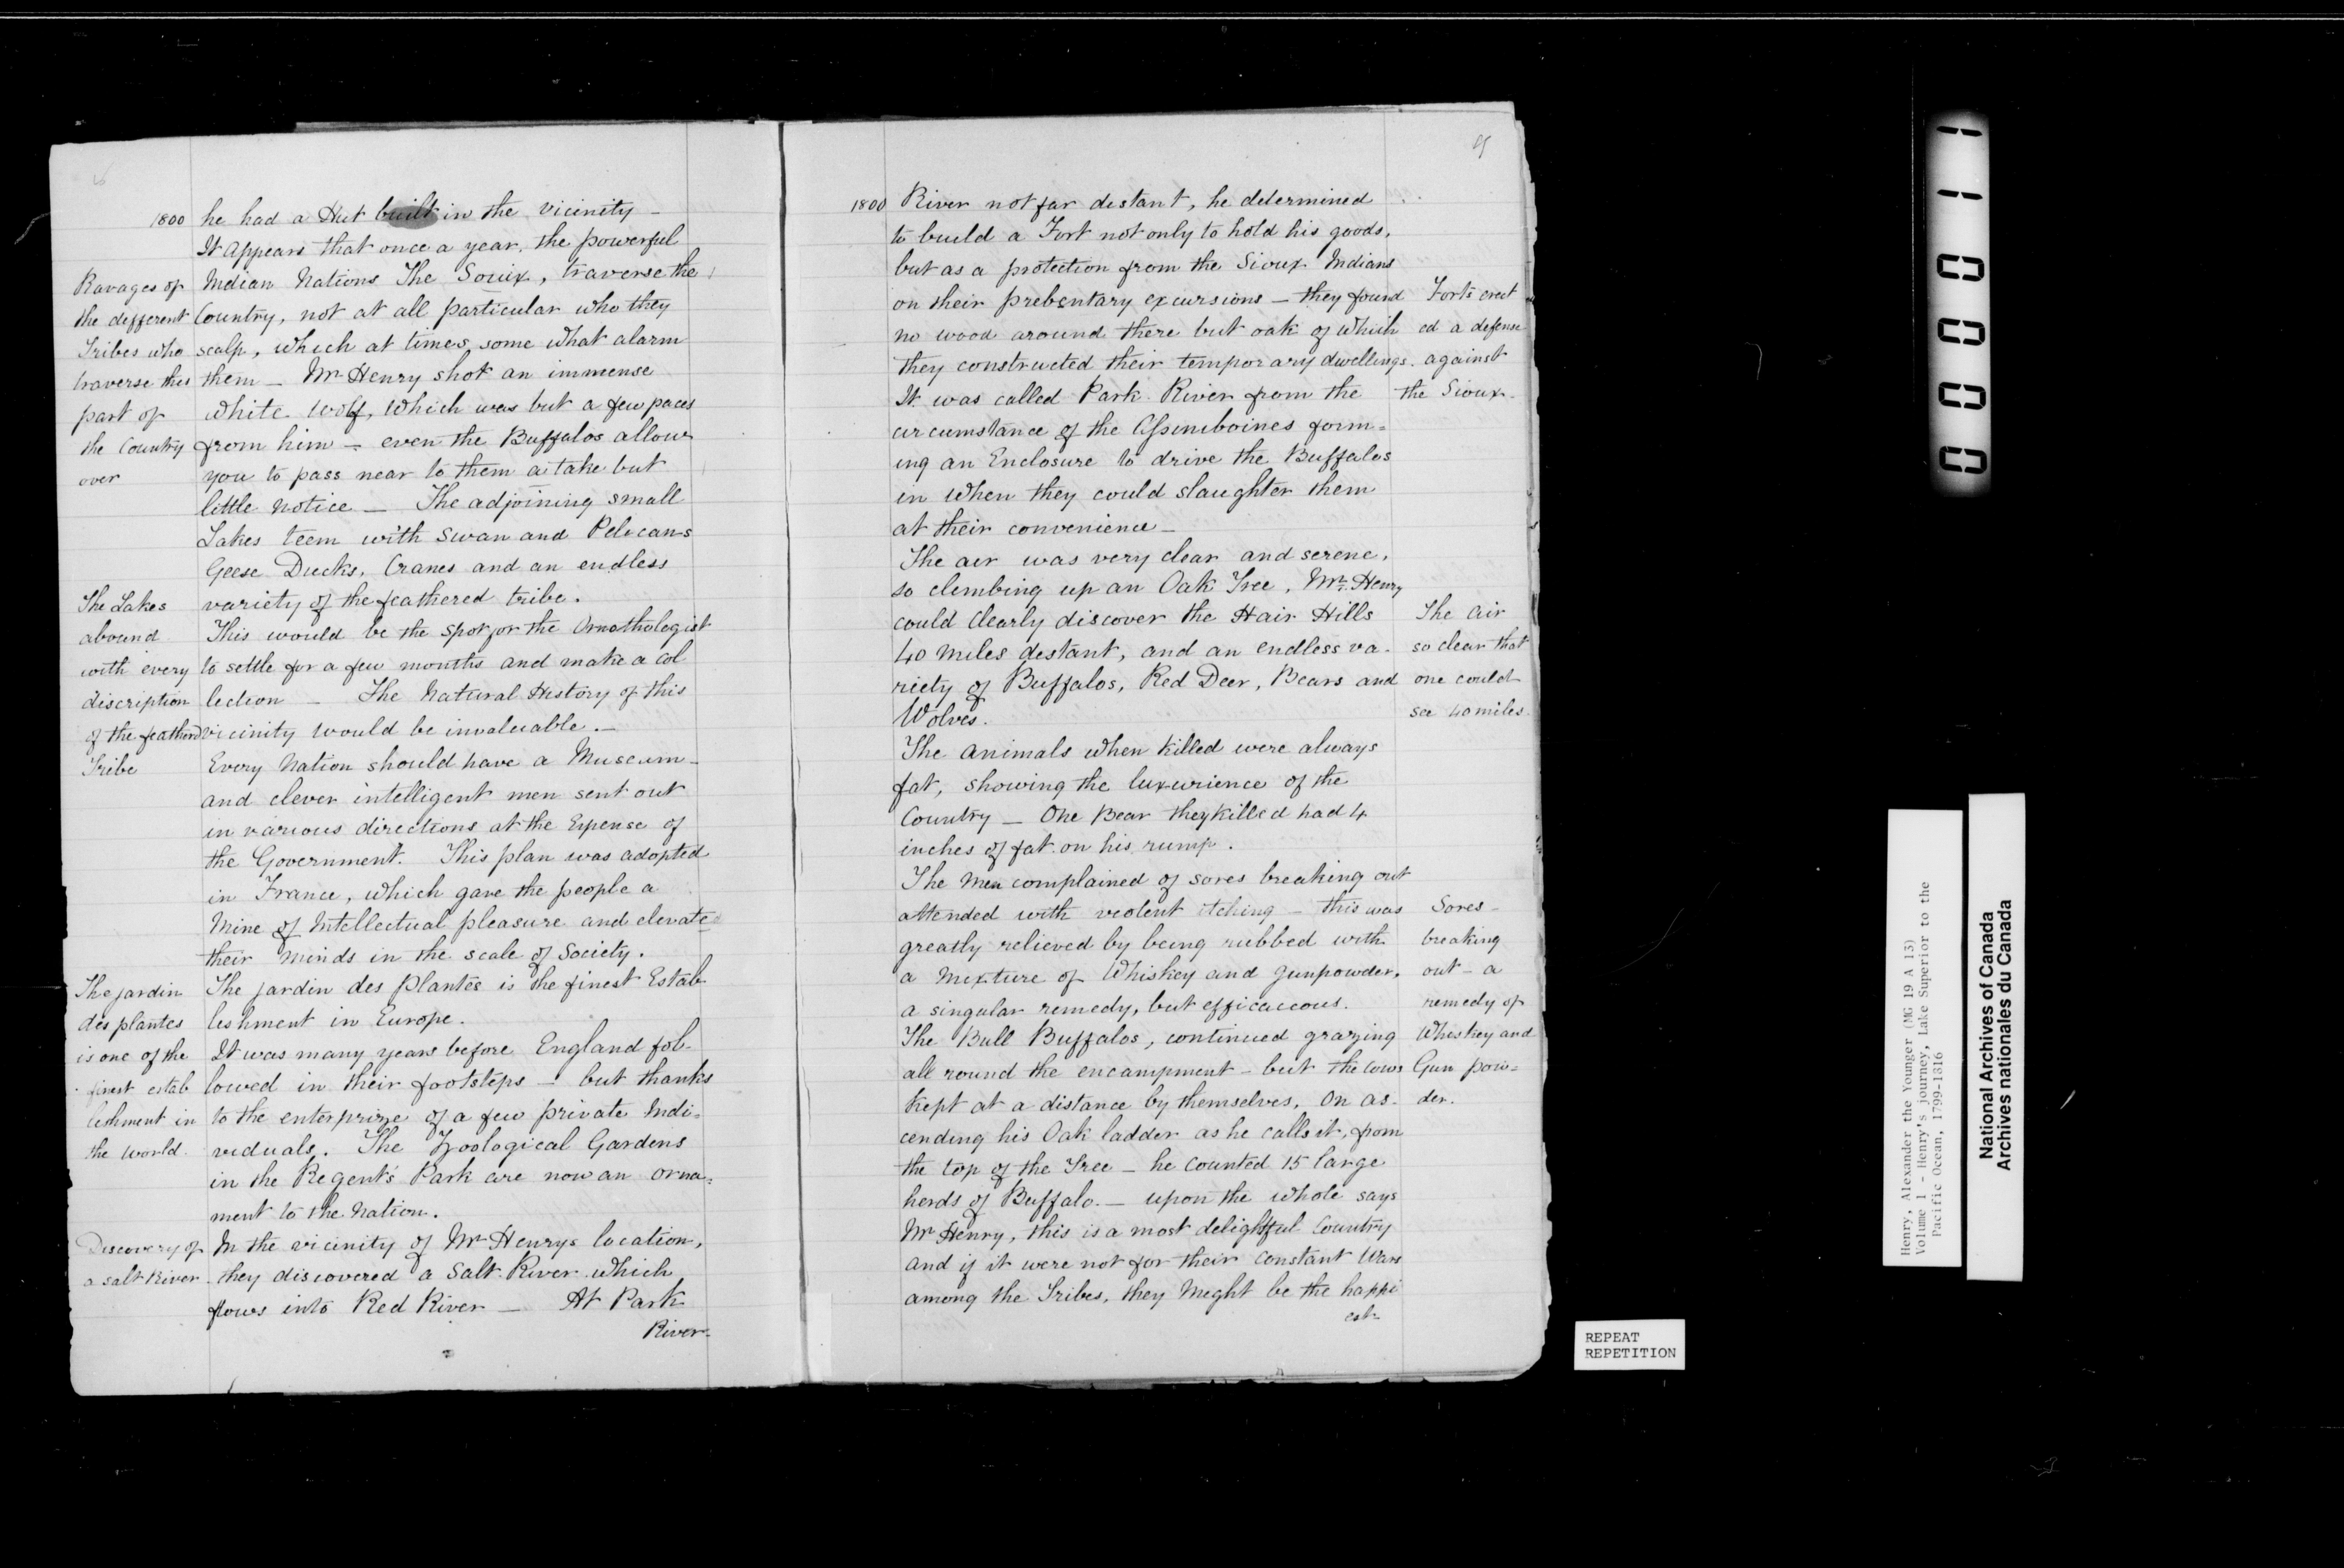 1800
he had a Hut built in the vicinity —
It appears that once a year, the powerful
Indian Nations The Souix, traverse the
Country, not at all particular who they
scalp, which at times some what alarm
them — Mr Henry shot an immense
white Wolf, which was but a few paces
from him — even the Buffalos allow
you to pass near to them a take but
little notice — The adjoining small
Lakes teem with Swan and Pelicans
Geese Ducks, Cranes and an endless
variety of the feathered tribe.
This would be the spot for the Ornothologist
to settle for a few months and make a col
lection — The Natural History of this
vicinity would be invaluable. —
Every Nation should have a Museum —
and clever intelligent men sent out
in various directions at the Expense of
the Government. This plan was adopted
in France, which gave the people a
Mine of Intellectual pleasure and elevated
their minds in the scale of Society.
The jardin des Plantes is the finest Estab
lishment in Europe.
It was many years before England fol-
lowed in their footsteps — but thanks
to the enterprize of a few private Indi=
viduals. The Zoological Gardens
in the Regent's Park are now an orna=
ment to the Nation.
In the vicinity of Mr Henrys location,
they discovered a Salt River which
flows into Red River — At Park
River
Ravages of
the different
Tribes who
traverse this
part of
the Country
over
The Lakes
abound
with every
discription
of the featherd
Tribe
The jardin
des plantes
is one of the
finest estab
lishment in
the World.
Discovery of
a Salt River
1800
River not far distant, he determined
to build a Fort not only to hold his goods,
but as a protection from the Sioux Indians
on their prebentary excursions — they found
no wood around there but oak of which
they constructed their temporary dwellings.
It was called Park River from the
circumstance of the Assiniboines form=
ing an Enclosure to drive the Buffalos
in when they could slaughter them
at their convenience —
The air was very clear and serene,
so climbing up an Oak Tree, Mr. Henry
could clearly discover the Hair Hills
40 miles distant, and an endless va-
riety of Buffalos, Red Deer, Bears and
Wolves.
The animals when killed were always
fat, showing the luxurience of the
Country — One Bear they killed had 4
inches of fat on his rump.
The Men complained of sores breaking out
attended with violent itching — this was
greatly relieved by being rubbed with
a Mixture of Whiskey and gunpowder,
a singular remedy, but efficacious.
The Bull Buffalos, continued grazing
all round the encampment — but the cows
kept at a distance by themselves. On as-
cending his Oak ladder as he calls it, from
the top of the Tree — he counted 15 large
herds of Buffalo. — upon the whole says
Mr Henry, this is a most delightful Country
and if it were not for their constant Wars
among the Tribes, they might be the happi
est
Forts erect
ed a defense
against
the Sioux.
The air
so clear that
one could
see 40 miles.
Sores —
breaking
out — a
remedy of
Whiskey and
Gun pow=
der.
REPEAT
REPETITION
000011
Henry, Alexander the Younger (MG 19 A 13)
Volume 1 - Henry's journey, Lake Superior to the
Pacific Ocean, 1799-1816
National Archives of Canada
Archives nationales du Canada